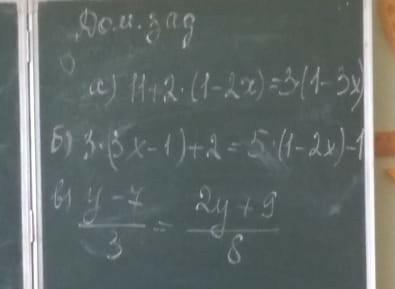 Дом. зад
а) 11+2·(1-2x)=3(1-3x)
б) 3·(3x-1)+2=5·(1-2x)-1
в) y-7/3 = 2y+9/8